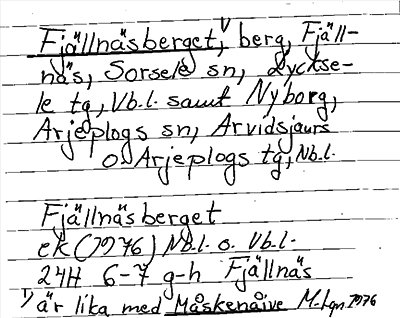 Fjällnäsberget, berg, Fjäll-
näs, Sorsele sn, Lyckse-
le tg, Vb.l. samt Nyborg,
Arjeplogs sn, Arvidsjaurs
o. Arjeplogs tg, Nb.l.
Fjällnäsberget
ek (1976) Nb.l. o. Vb.l.
24H 6-7 g-h Fjällnäs
1) är lika med Måskenåive M.Lgn. 1976